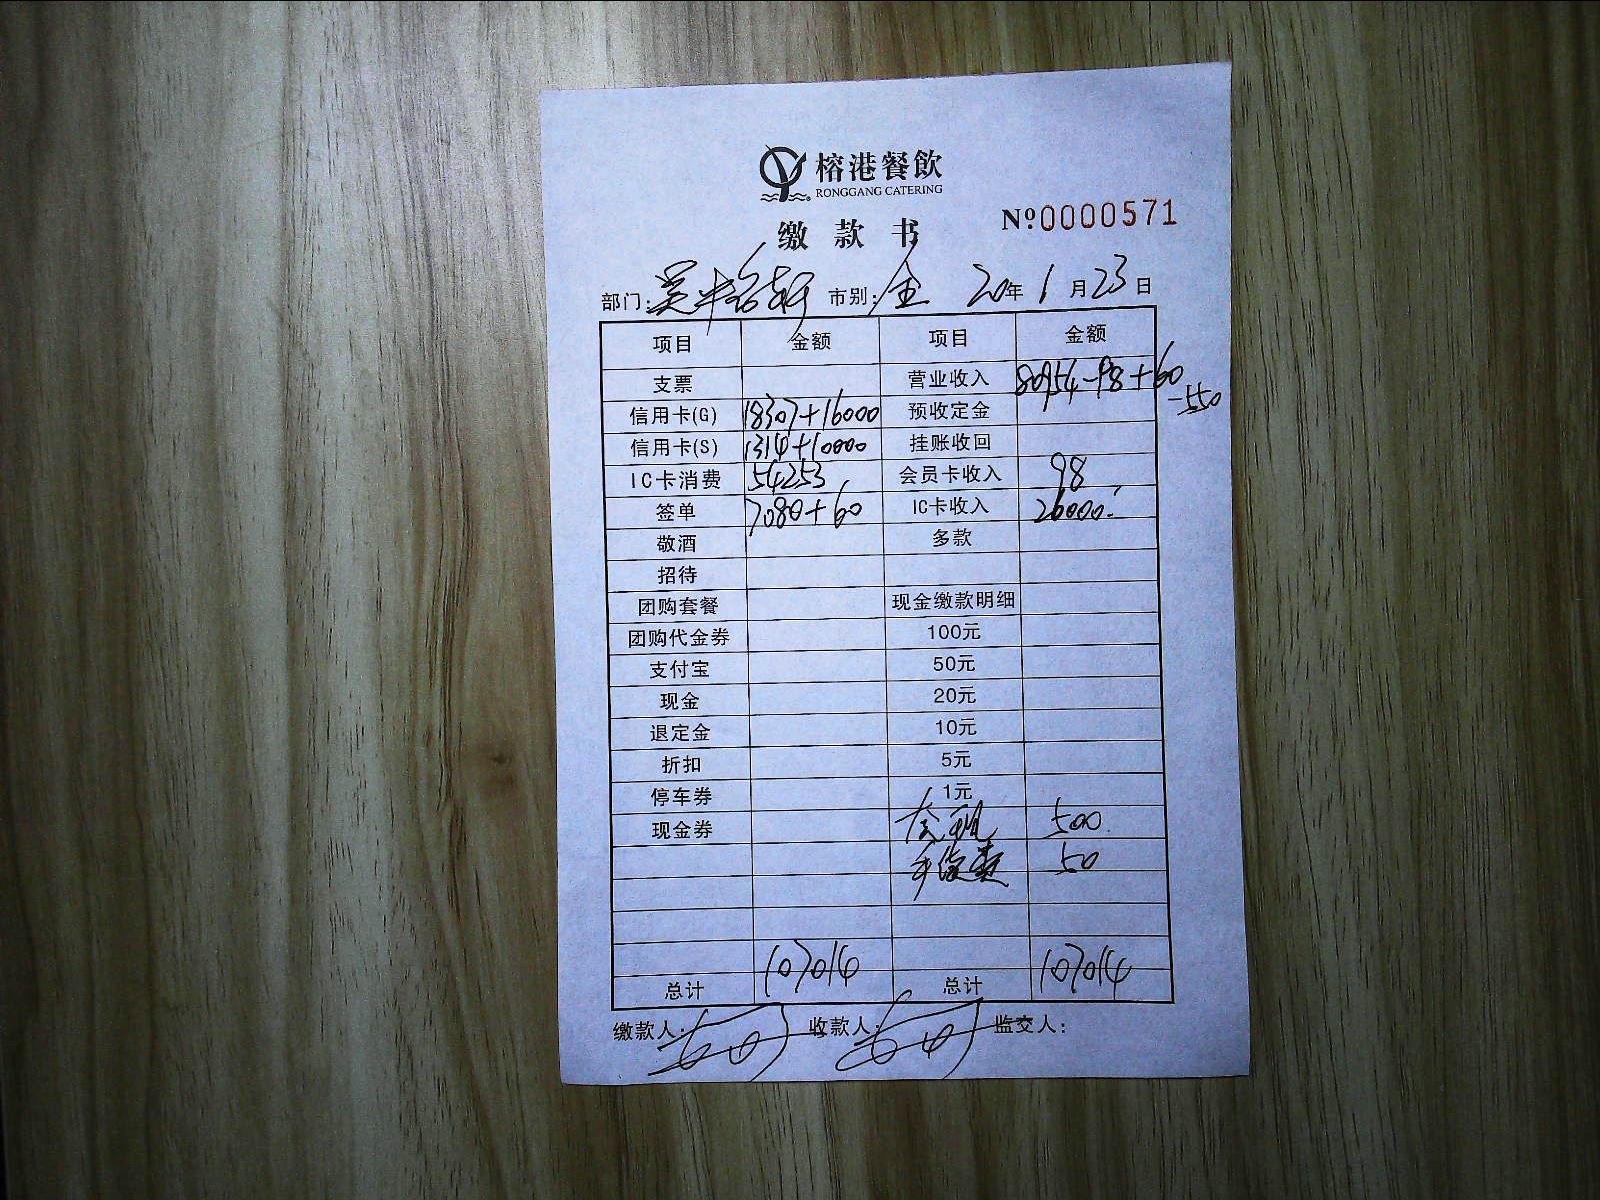 榕港餐飲
RONGGANG CATERING
缴款书
Nº0000571
部门: 市别:全 20年1月23日
项目 金额 项目 金额
支票 营业收入 80954-98+60-550
信用卡(G) 18307+16000 预收定金
信用卡(S) 1314+10000 挂账收回
IC卡消费 54253 会员卡收入 98
签单 7080+60 IC卡收入 26000.
敬酒 多款
招待
团购套餐 现金缴款明细
团购代金券 100元
支付宝 50元
现金 20元
退定金 10元
折扣 5元
停车券 1元
现金券 套现 500.
手续费 50
总计 107014 总计 107014
缴款人: 收款人: 监交人: